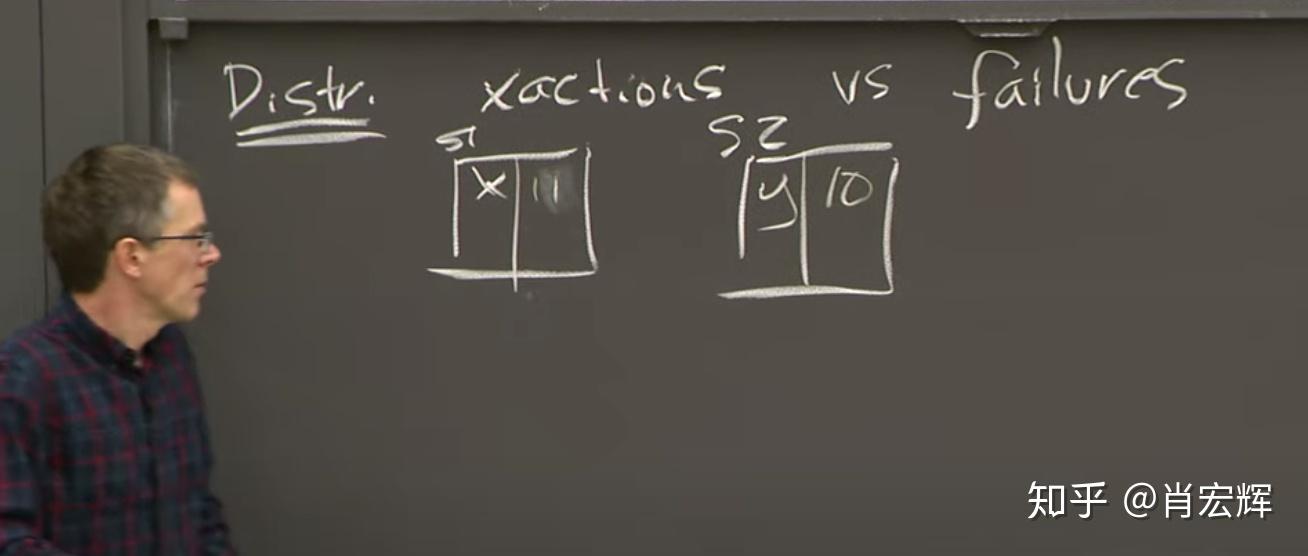 Distr. xactions vs failures
S1 S2
x 11 y 10
知乎 @肖宏辉